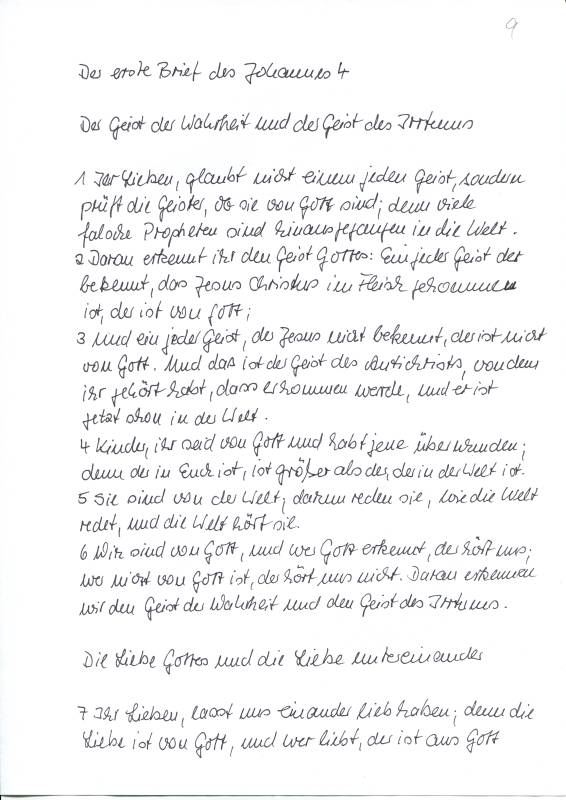 9
Der erste Brief des Johannes 4
Der Geist der Wahrheit und der Geist des Irrtums
1 Ihr Lieben, glaubt nicht einem jeden Geist, sondern
prüft die Geister, ob sie von Gott sind; denn viele
falsche Propheten sind hinausgegangen in die Welt.
2 Daran erkennt ihr den Geist Gottes: Ein jeder Geist der
bekennt, das Jesus Christus im Fleisch gekommen
ist, der ist von Gott;
3 Und ein jeder Geist, der Jesus nicht bekennt, der ist nicht
von Gott. Und das ist der Geist des Antichrists, von dem
ihr gehört habt, dass er kommen werde, und er ist
jetzt schon in der Welt.
4 Kinder, ihr seid von Gott und habt jene überwunden;
denn der in Euch ist, ist größer als der, der in der Welt ist.
5 Sie sind von der Welt; darum reden sie, wie die Welt
redet, und die Welt hört sie.
6 Wir sind von Gott, und wer Gott erkennt, der hört uns;
wer nicht von Gott ist, der hört uns nicht. Daran erkennen
wir den Geist der Wahrheit und den Geist des Irrtums.
Die Liebe Gottes und die Liebe untereinander
7 Ihr Lieben, lasst uns einander lieb haben; denn die
Liebe ist von Gott, und wer liebt, der ist aus Gott